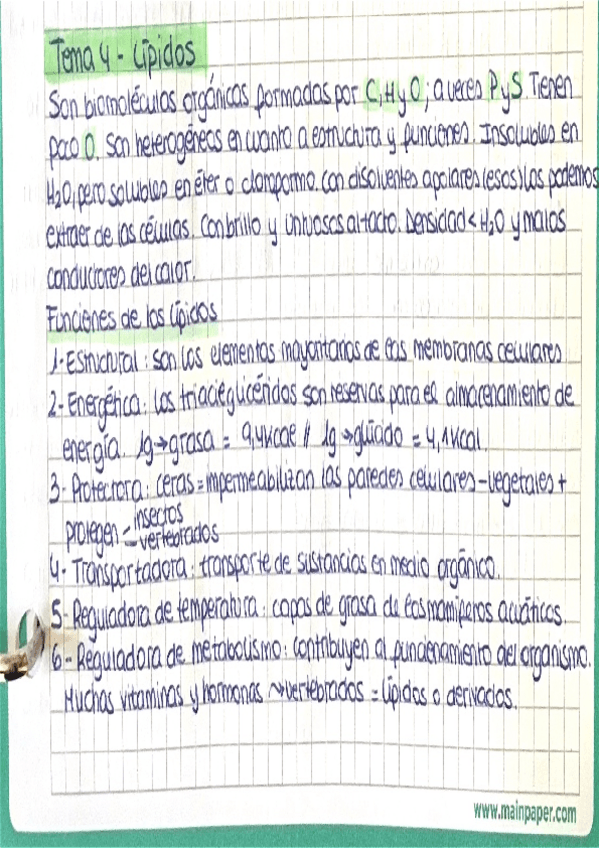 Tema 4 - Lípidos
Son biomoléculas orgánicas formadas por C, H y O; a veces P y S. Tienen
poco O. Son heterogéneas en cuanto a estructura y funciones. Insolubles en
H2O, pero solubles en éter o cloroformo. Con disolventes apolares (esos) los podemos
extraer de las células. Con brillo y untuosas al tacto. Densidad < H2O y malos
conductores del calor.
Funciones de los lípidos
1- Estructural: son los elementos mayoritarios de las membranas celulares
2- Energética: los triacilglicéridos son reservas para el almacenamiento de
energía. 1g → grasa = 9,4Kcal // 1g → glúcido = 4,1Kcal.
3- Protectora: ceras = impermeabilizan las paredes celulares - vegetales +
protegen - insectos
- vertebrados
4- Transportadora: transporte de sustancias en medio orgánico.
5- Reguladora de temperatura: capas de grasa de los mamíferos acuáticos.
6- Reguladora de metabolismo: contribuyen al funcionamiento del organismo.
Muchas vitaminas y hormonas ⇝ vertebrados = lípidos o derivados.
www.mainpaper.com